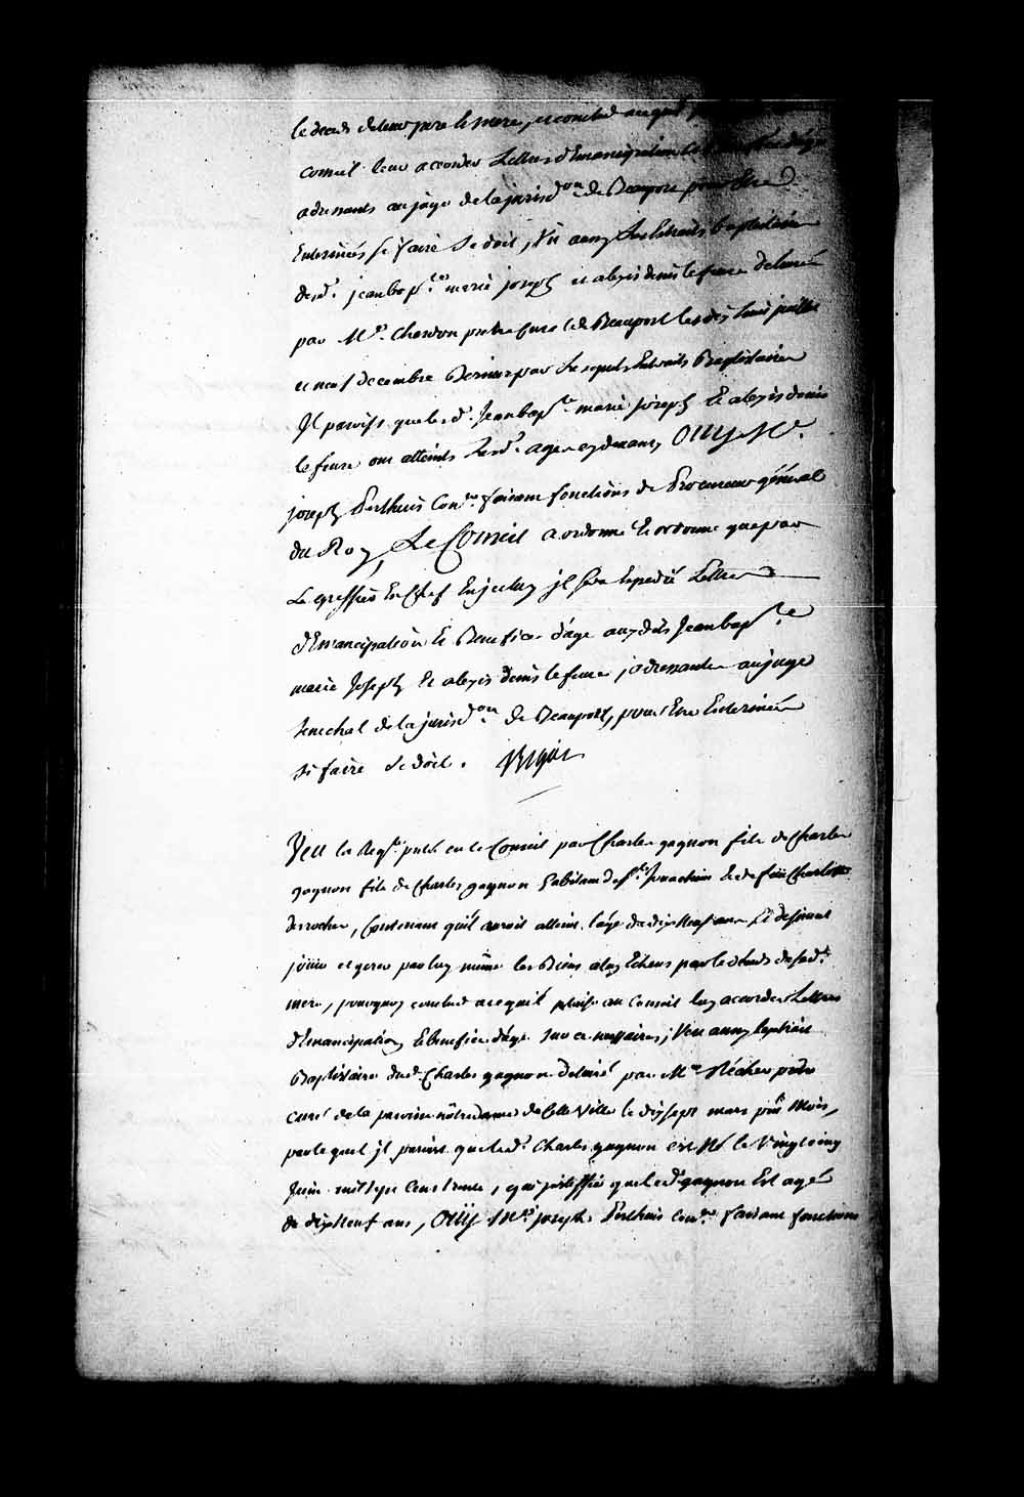 le deceds de leur pere & mere, et conclud a ce quil
conseil leur accorder Lettres d'Emancipation & benefice d'âge
adressants au juge de la jurisd.on de Beauport pour Etre
Enterinées se faire se doit, Vû aussy Les Extraits baptistaires
desd. jean bap.te marie joseph et alexis denis lefevre delivrés
par M.e Chardon prêtre curé de Beauport les dix huit juillet
et neuf decembre Dernier par Lesquels Extraits Baptistaires
Il paroist que lesd. Jean bap.te marie joseph Et alexis denis
lefevre ont atteints Lesd. ages cy devant, OUY M.e
joseph Perthuis Con.er faisant fonctions de Procureur général
du Roy, Le Conseil a ordonné & ordonne que par
Le greffier En Chef En jceluy jl sera Expedié Lettres
d'Emancipation & Benefice d'âge auxdits Jean bap.te
marie Joseph & alexis denis lefevre, adressantes au juge
senechal de la jurisd.on de Beauport, pour Etre Enterinées
si faire se doit. Bigot
Veu la Req.te pnté en ce Conseil par Charles gagnon fils de Charles
gagnon fils de Charles gagnon habitant de S.t Joachim & de feüe Charlotte
desrocher, Contenant qu'il auroit atteint l'âge de dix Neuf ans Et desirant
jouir et gerer par luy même les Biens a luy Echeus par le deceds de sad.
mere, pourquoy conclud a ce quil plaise au Conseil luy accorder Lettres
d'Emancipation & benefice d'âge sur ce necessaires; Veu aussy lextrait
Baptistaire dud. Charles gagnon delivré par M.e Récher p.tre
curé de la paroisse nôtre dame de Cette Ville le dix sept mars p.nt Mois,
par lequel jl paroist que led. Charles gagnon est Né le Vingt cinq
Juin mil sept Cens trente, qui justiffie que led. gagnon Est agé
de dix Neuf ans, OUY M.e joseph Perthuis Con.er faisant fonctions